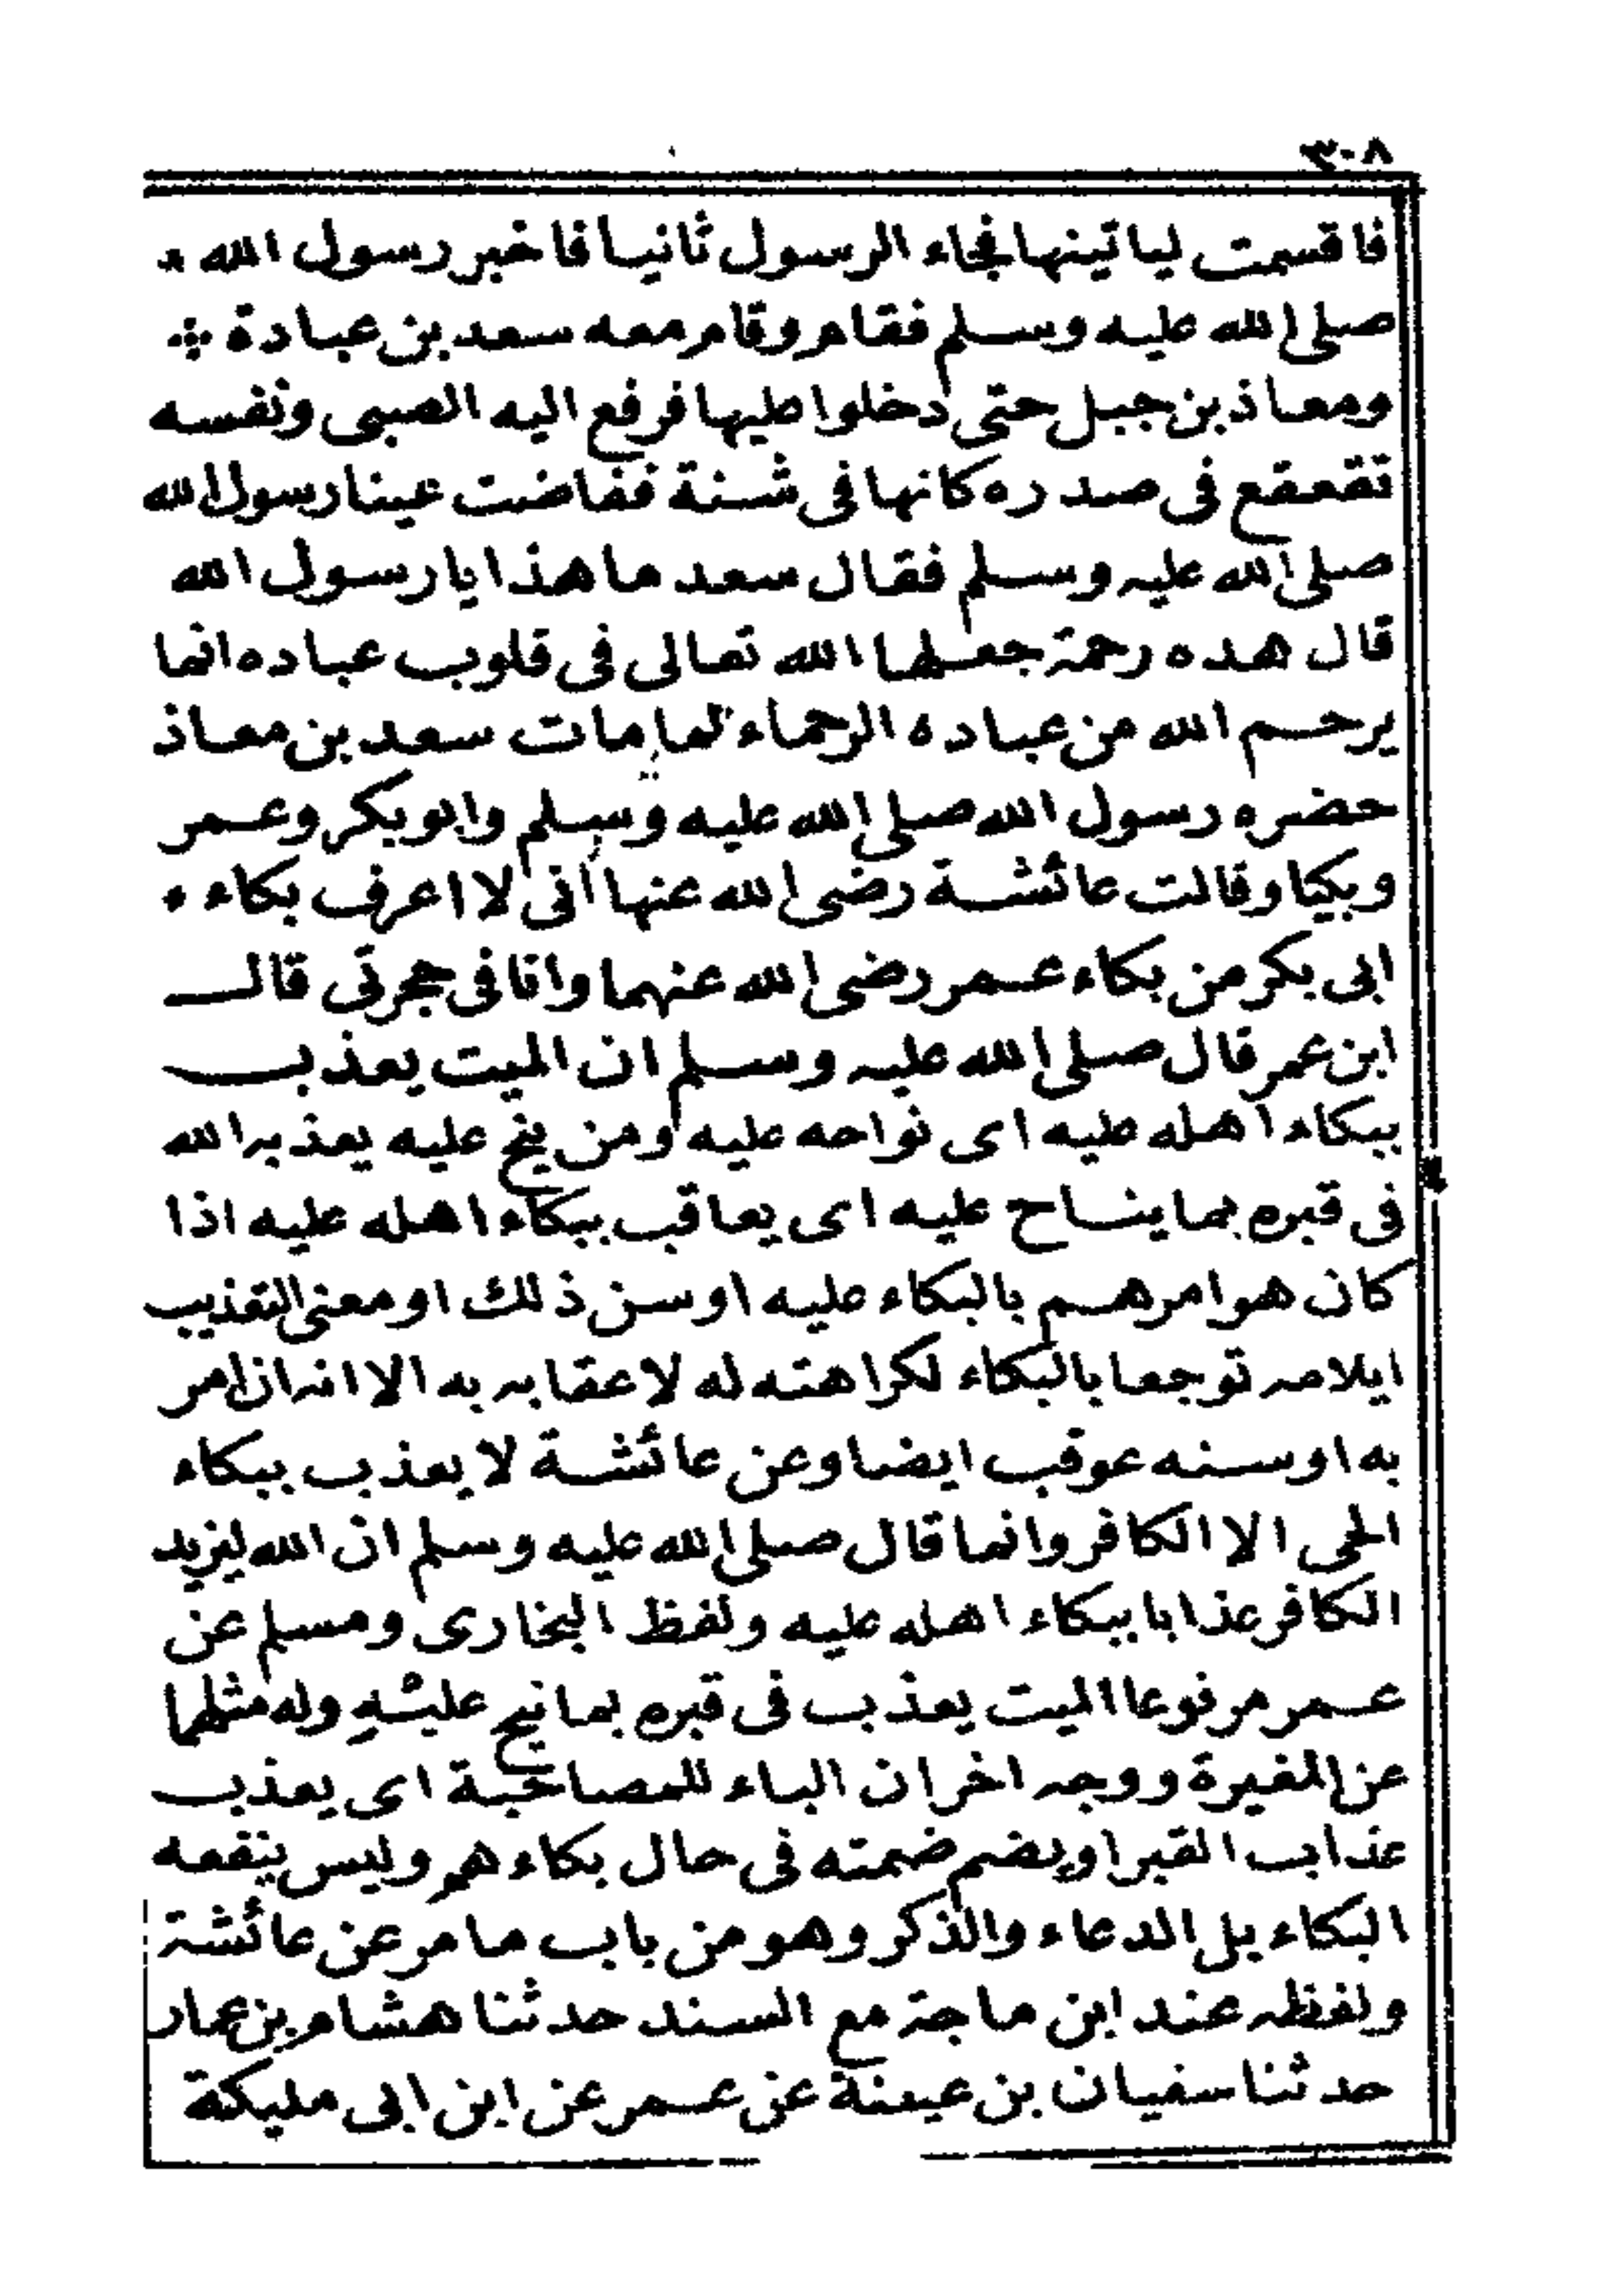 ٣٠٨
فاقسمت لياتينها فجاء الرسول ثانيا فاخبر رسول الله
صلى الله عليه وسلم فقام وقام معه سعد بن عبادة
ومعاذ بن جبل حتى دخلوا عليها فرفع اليه الصبى ونفسه
تقعقع فى صدره كانها فى شنة ففاضت عينا رسول الله
صلى الله عليه وسلم فقال سعد ما هذا يا رسول الله
قال هده رحمة جعلها الله تعالى فى قلوب عباده انما
يرحم الله من عباده الرحماء لما مات سعد بن معاذ
حضره رسول الله صلى الله عليه وسلم وابو بكر وعمر
وبكيا وقالت عائشة رضى الله عنها انى لا اعرف بكاء
ابى بكر من بكاء عمر رضى الله عنهما وانا فى حجرتى قال
ابن عمر قال صلى الله عليه وسلم ان الميت يعذب
ببكاء اهله عليه اى نواحه عليه ومن ينح عليه يعذبه الله
فى قبره بما يناح عليه اى يعاقب ببكاء اهله عليه اذا
كان هو امرهم بالبكاء عليه او سن ذلك او معنى التعذيب
ايلامه توجعا بالبكاء لكراهته له لا عقابه به الا انه ان امر
به او سنه عوقب ايضا وعن عائشة لا يعذب ببكاء
الحى الا الكافر وانما قال صلى الله عليه وسلم ان الله ليزيد
الكافر عذابا ببكاء اهله عليه ولفظ البخارى ومسلم عن
عمر مرفوعا الميت يعذب فى قبره بما نيح عليه وله مثلها
عن المغيرة ووجه اخر ان الباء للمصاحبة اى يعذب
عذاب القبر او يضم ضمته فى حال بكاءهم وليس ينفعه
البكاء بل الدعاء والذكر وهو من باب ما مر عن عائشة
ولفظه عند ابن ماجة مع السند حدثنا هشام بن عمار
حدثنا سفيان بن عيينة عن عمر عن ابن ابى مليكة